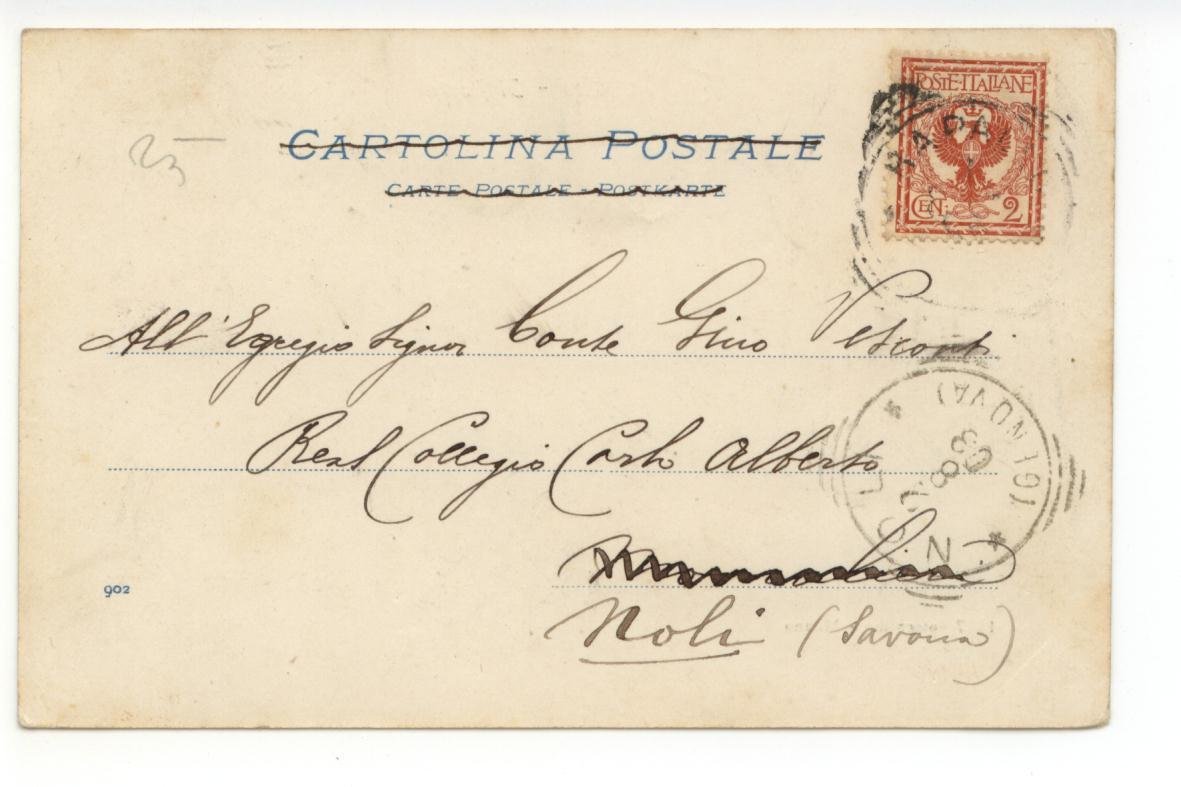 25
CARTOLINA POSTALE
CARTE POSTALE - POSTKARTE
POSTE·ITALIANE
CEN. 2
All' Egregio Signor Conte Gino Visconti
Real Collegio Carlo Alberto
NOLI * (GENOVA) *
902
Noli (Savona)